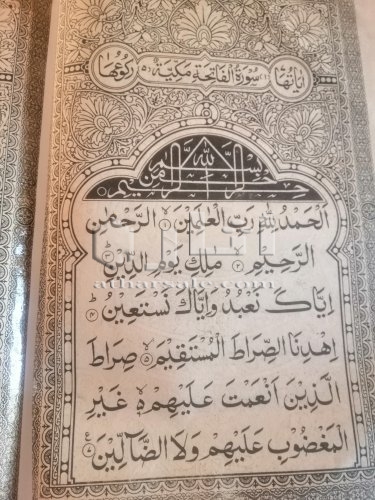 اٰیاتها ٧ سُوْرَةُ الْفَاتِحَةِ مَکِّیَّةٌ ٥ رکوعها
بِسْمِ اللّٰهِ الرَّحْمٰنِ الرَّحِیْمِ
اَلْحَمْدُ لِلّٰهِ رَبِّ الْعٰلَمِیْنَ ١ الرَّحْمٰنِ
الرَّحِیْمِ ٢ مٰلِكِ یَوْمِ الدِّیْنِ ٣
اِیَّاكَ نَعْبُدُ وَاِیَّاكَ نَسْتَعِیْنُ ٤
اِهْدِنَا الصِّرَاطَ الْمُسْتَقِیْمَ ٥ صِرَاطَ
الَّذِیْنَ اَنْعَمْتَ عَلَیْهِمْ ٦ غَیْرِ
الْمَغْضُوْبِ عَلَیْهِمْ وَلَا الضَّآلِّیْنَ ٧
atharsale.com